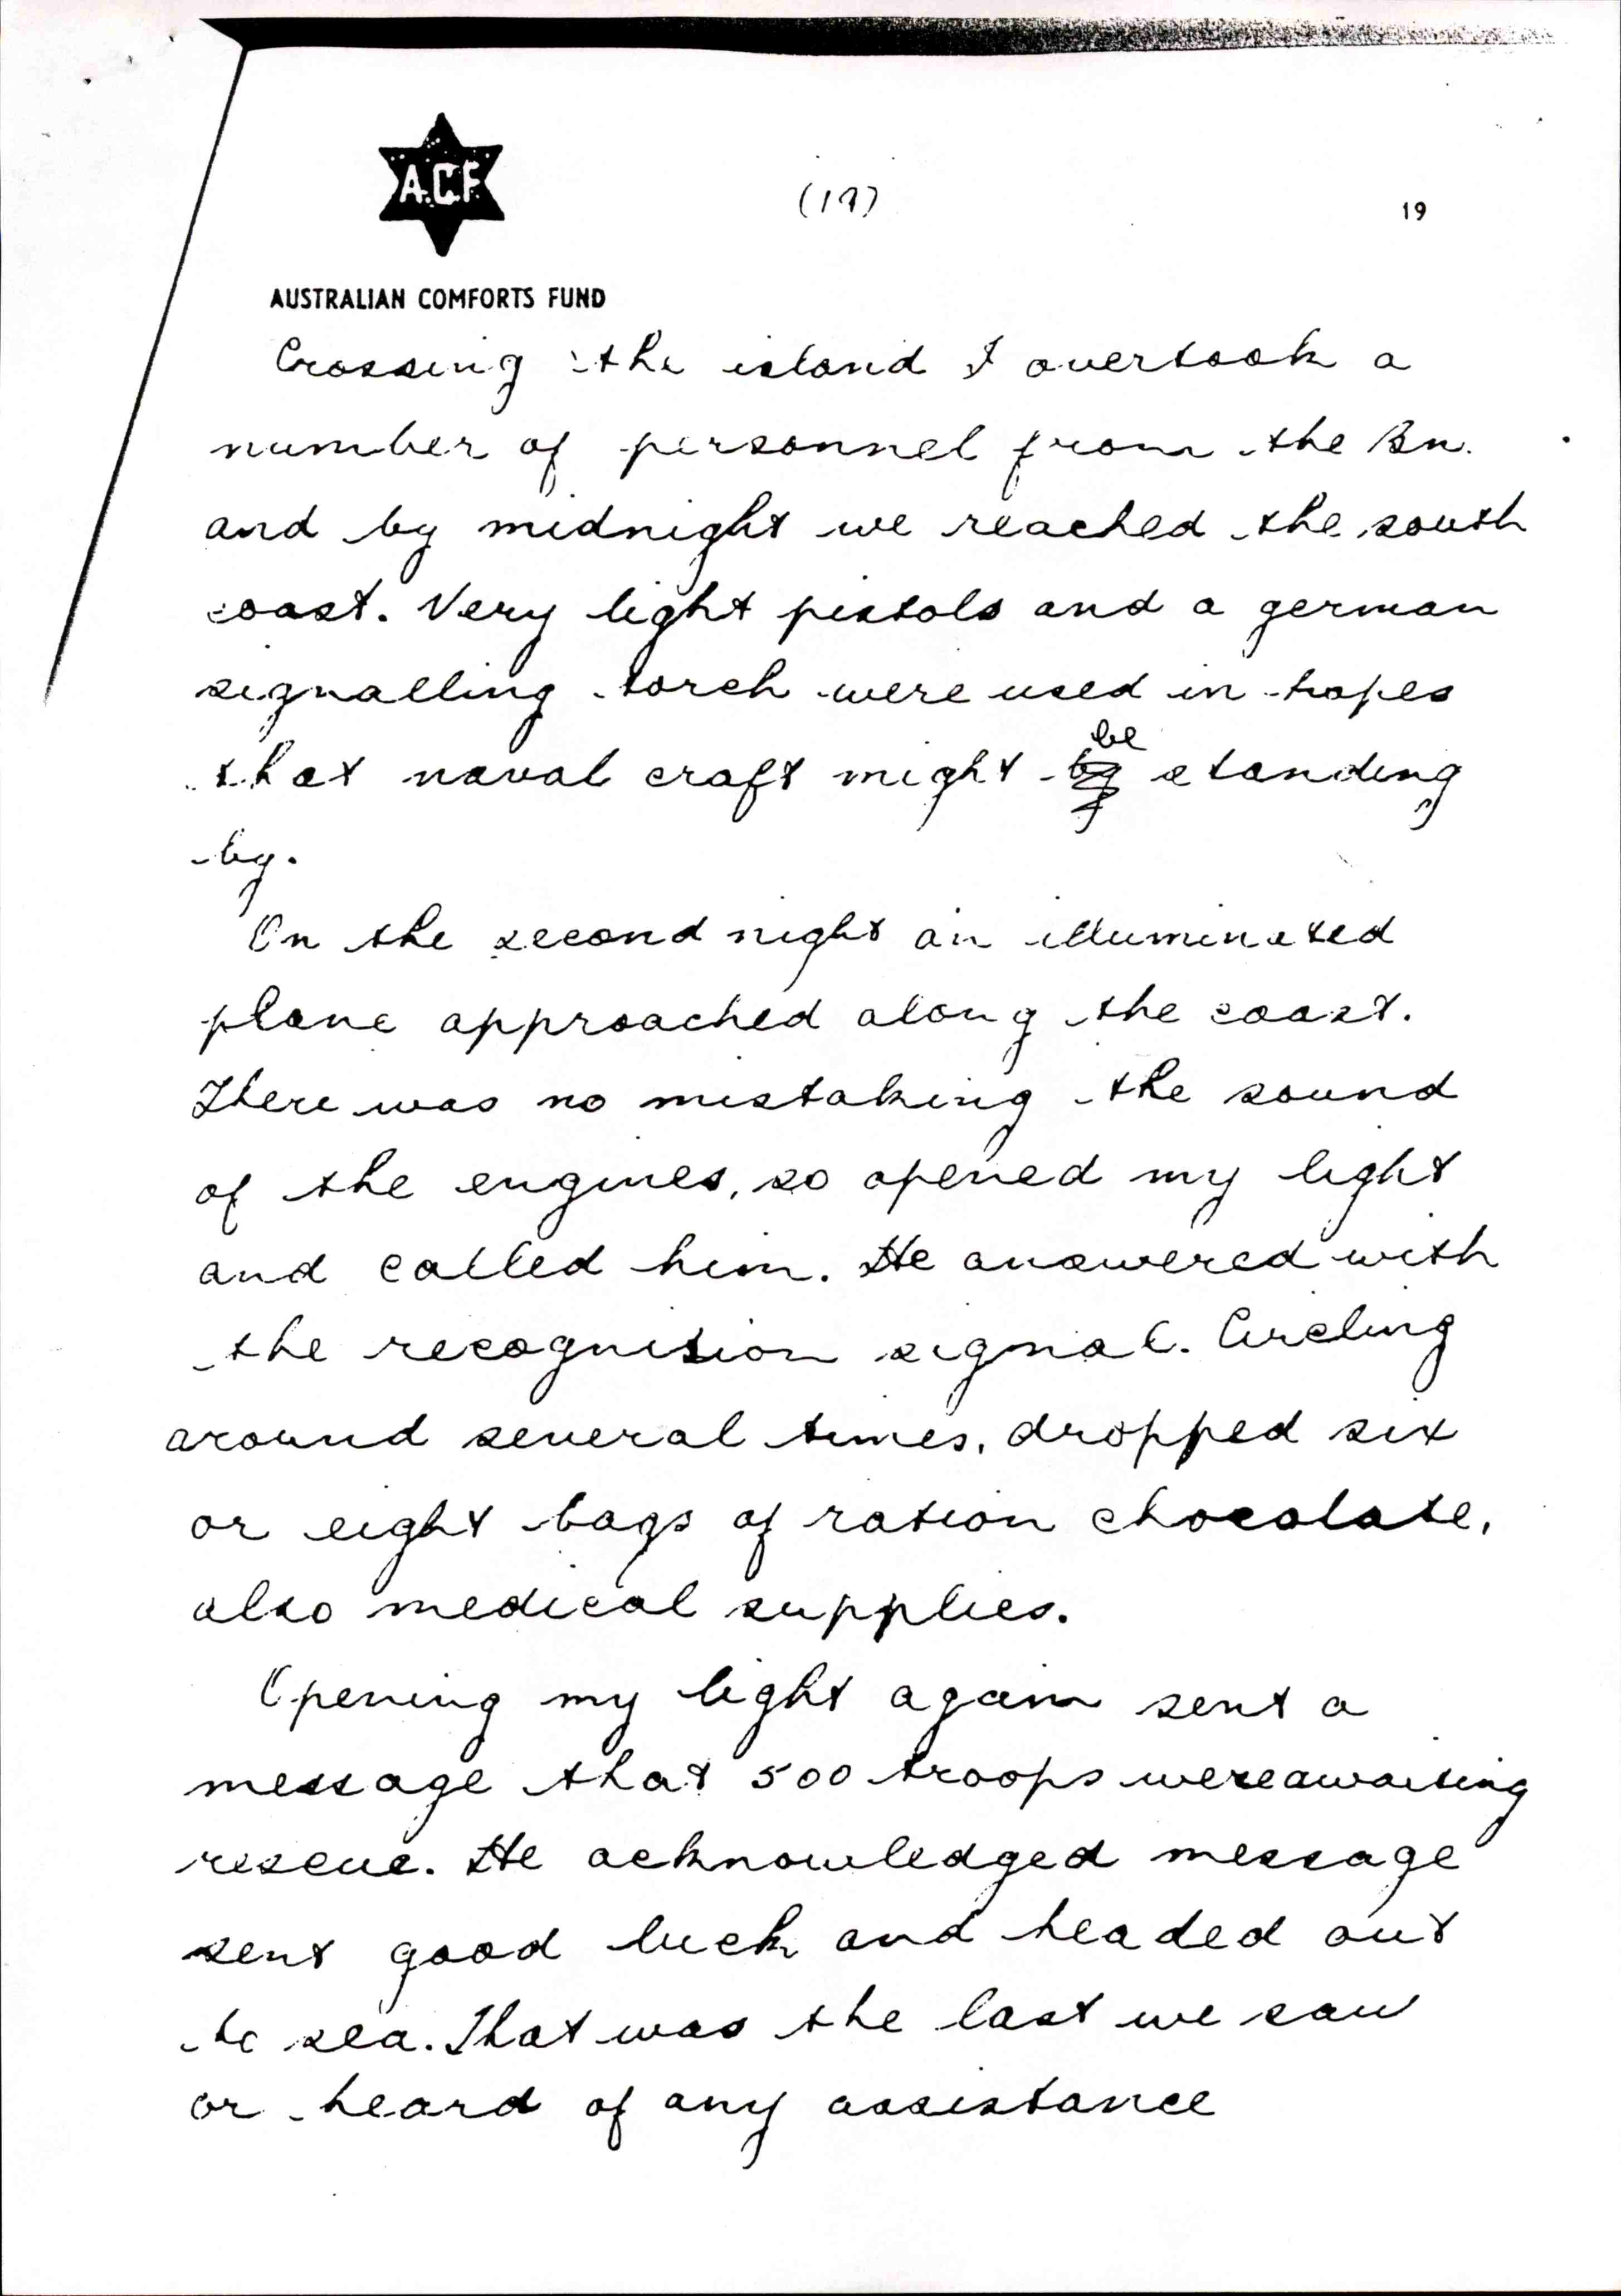 A.C.F.
(19)
19
AUSTRALIAN COMFORTS FUND
Crossing the island I overtook a
number of personnel from the Bn.
and by midnight we reached the south
coast. Very light pistols and a german
signalling torch were used in hopes
be
that naval craft might by standing
by.
On the second night an illuminated
plane approached along the coast.
There was no mistaking the sound
of the engines, so opened my light
and called him. He answered with
the recognision signal. Circling
around several times, dropped six
or eight bags of ration chocolate,
also medical supplies.
Opening my light again sent a
message that 500 troops were awaiting
rescue. He acknowledged message
sent good luck and headed out
to sea. That was the last we saw
or heard of any assistance